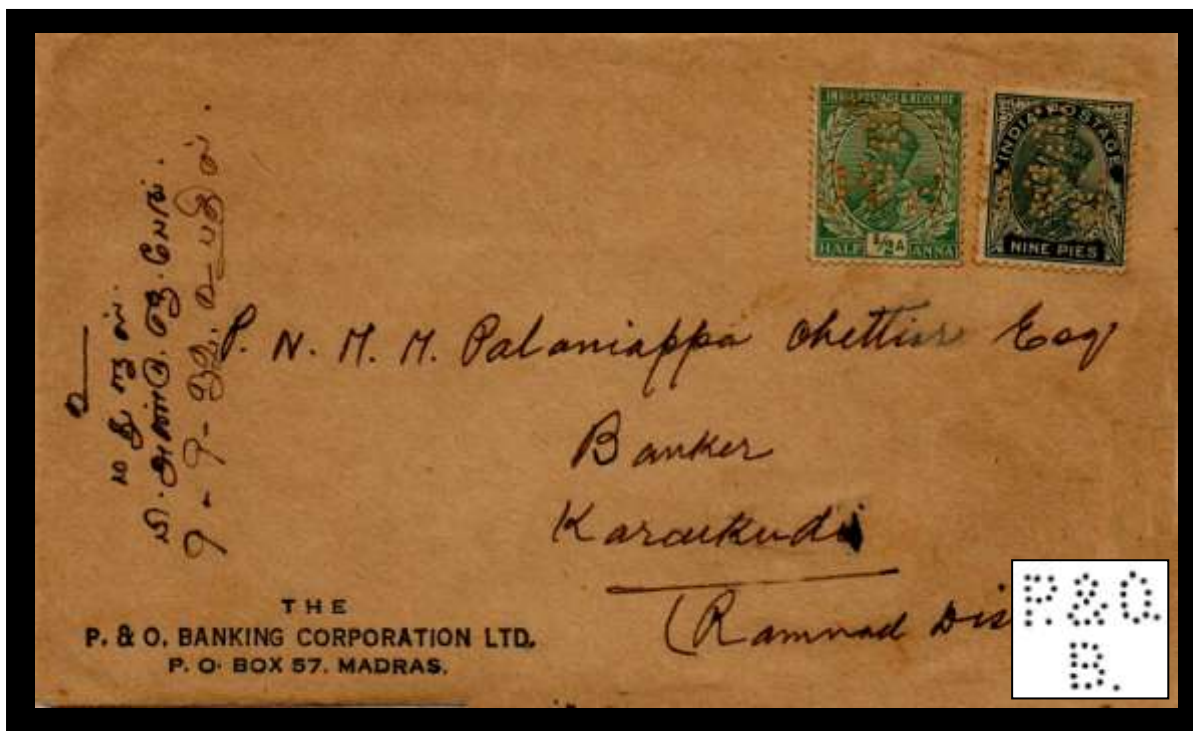 INDIA POSTAGE & REVENUE
HALF 1/2A ANNA
INDIA POSTAGE
NINE PIES
P. N. M. M. Palaniappa Chettiar Esq
Banker
Karaikudi
(Ramnad Dis
THE
P. & O. BANKING CORPORATION LTD.
P. O. BOX 57. MADRAS.
P. & O.
B.